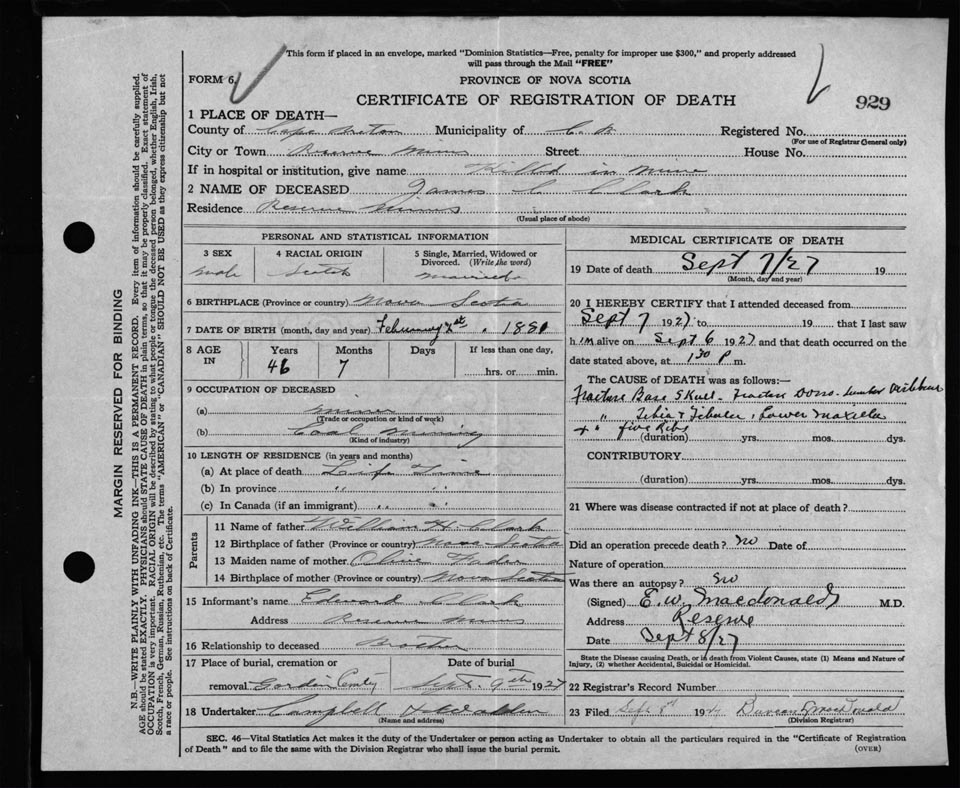 This form if placed in an envelope, marked "Dominion Statistics—Free, penalty for improper use $300," and properly addressed
will pass through the Mail "FREE"
FORM 6.
PROVINCE OF NOVA SCOTIA
CERTIFICATE OF REGISTRATION OF DEATH
929
1 PLACE OF DEATH—
County of Cape Breton Municipality of C. B. Registered No.
(For use of Registrar General only)
City or Town Reserve Mines Street House No.
If in hospital or institution, give name Killed in Mine
2 NAME OF DECEASED James C Clark
Residence Reserve Mines
(Usual place of abode)
PERSONAL AND STATISTICAL INFORMATION
3 SEX 4 RACIAL ORIGIN 5 Single, Married, Widowed or
Divorced. (Write the word)
Male Scotch Married
6 BIRTHPLACE (Province or country) Nova Scotia
7 DATE OF BIRTH (month, day and year) February 1881
8 AGE IN Years Months Days If less than one day,
46 7 hrs. or min.
9 OCCUPATION OF DECEASED
(a) Miner
(Trade or occupation or kind of work)
(b) Coal Mining
(Kind of industry)
10 LENGTH OF RESIDENCE (in years and months)
(a) At place of death Life Time
(b) In province " "
(c) In Canada (if an immigrant) " "
Parents
11 Name of father William H Clark
12 Birthplace of father (Province or country) Nova Scotia
13 Maiden name of mother Olive
14 Birthplace of mother (Province or country) Nova Scotia
15 Informant's name Edward Clark
Address Reserve Mines
16 Relationship to deceased Brother
17 Place of burial, cremation or Date of burial
removal Gordon Cemty Sept. 9th 1927
18 Undertaker Campbell & Walden
(Name and address)
MEDICAL CERTIFICATE OF DEATH
19 Date of death Sept 7/27 19
(Month, day and year)
20 I HEREBY CERTIFY that I attended deceased from
Sept 7 1927 to 19 that I last saw
him alive on Sept 6 1927 and that death occurred on the
date stated above, at 1 30 P m.
The CAUSE of DEATH was as follows:
Fracture Base Skull - Fracture Dorso-lumbar Vertebrae
" Tibia & Fibula, Lower Maxilla
+ " five Ribs
(duration) yrs. mos. dys.
CONTRIBUTORY
(duration) yrs. mos. dys.
21 Where was disease contracted if not at place of death?
Did an operation precede death? No Date of
Nature of operation
Was there an autopsy? No
(Signed) E. W. Macdonald M.D.
Address Reserve
Date Sept 8/27
State the Disease causing Death, or in death from Violent Causes, state (1) Means and Nature of
Injury, (2) whether Accidental, Suicidal or Homicidal.
22 Registrar's Record Number
23 Filed Sept 8th 1927 Duncan J MacDonald
(Division Registrar)
SEC. 46—Vital Statistics Act makes it the duty of the Undertaker or person acting as Undertaker to obtain all the particulars required in the "Certificate of Registration
of Death" and to file the same with the Division Registrar who shall issue the burial permit.
(OVER)
MARGIN RESERVED FOR BINDING
N.B.—WRITE PLAINLY WITH UNFADING INK—THIS IS A PERMANENT RECORD. Every item of information should be carefully supplied.
AGE should be stated EXACTLY. PHYSICIANS should STATE CAUSE OF DEATH in plain terms, so that it may be properly classified. Exact statement of
OCCUPATION is very important. RACIAL ORIGIN will be described by stating to what people or tongue the deceased person belonged, whether English, Irish,
Scotch, French, German, Russian, Ruthenian, etc. The terms "AMERICAN" or "CANADIAN" SHOULD NOT BE USED as they express citizenship but not
a race or people. See instructions on back of Certificate.